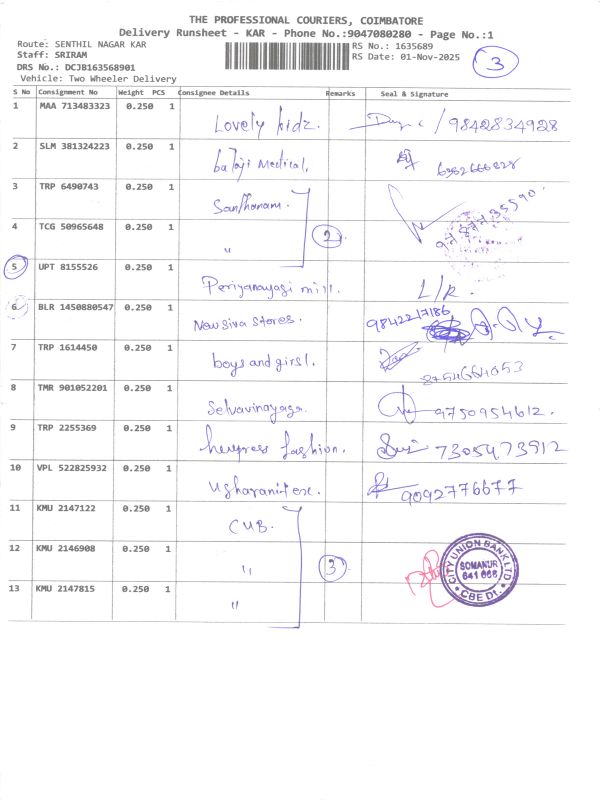 THE PROFESSIONAL COURIERS, COIMBATORE
Delivery Runsheet - KAR - Phone No.:9047080280 - Page No.:1
Route: SENTHIL NAGAR KAR
RS No.: 1635689
Staff: SRIRAM
RS Date: 01-Nov-2025
3
DRS No.: DCJB163568901
Vehicle: Two Wheeler Delivery
S No Consignment No Weight PCS Consignee Details Remarks Seal & Signature
1 MAA 713483323 0.250 1 Lovely kidz. / 9842834928
2 SLM 381324223 0.250 1 balaji Medical,
3 TRP 6490743 0.250 1 Santhanam.
4 TCG 50965648 0.250 1 " 2
5 UPT 8155526 0.250 1 Periyanayagi mill. L/R.
6 BLR 1450880547 0.250 1 New siva stores. 9842217186
7 TRP 1614450 0.250 1 boys and girsl. 8754664053
8 TMR 901052201 0.250 1 Selvavinayaga. 9750954612.
9 TRP 2255369 0.250 1 fashion. 7305473912
10 VPL 522825932 0.250 1 9092776677
11 KMU 2147122 0.250 1 CUB.
12 KMU 2146908 0.250 1 " 3
13 KMU 2147815 0.250 1 "
CITY UNION BANK LTD
SOMANUR
641 668
CBE Dt.